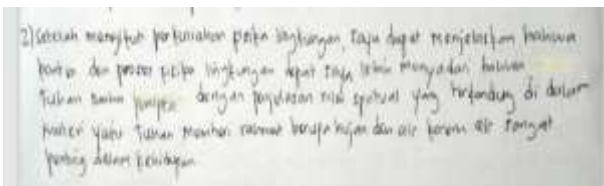 2) Setelah mengikuti perkuliahan fisika lingkungan, saya dapat menjelaskan bahwa
dan proses fisika lingkungan dapat saya lebih menyadari bahwa
Tuhan dengan penjelasan nilai spiritual yang terkandung di dalam
materi yaitu Tuhan memberi rahmat berupa hujan dan air karena air sangat
penting dalam kehidupan.